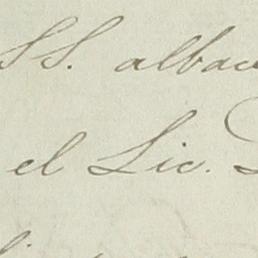 SS. albac
el Lic.